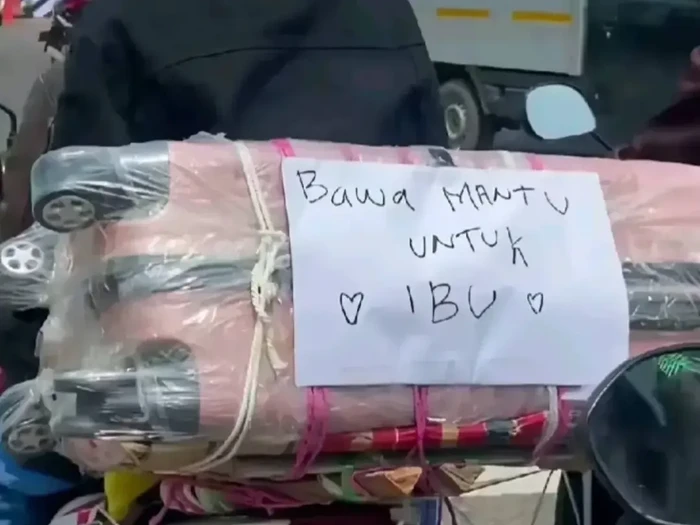 Bawa MANTU
UNTUK
♡ IBU ♡